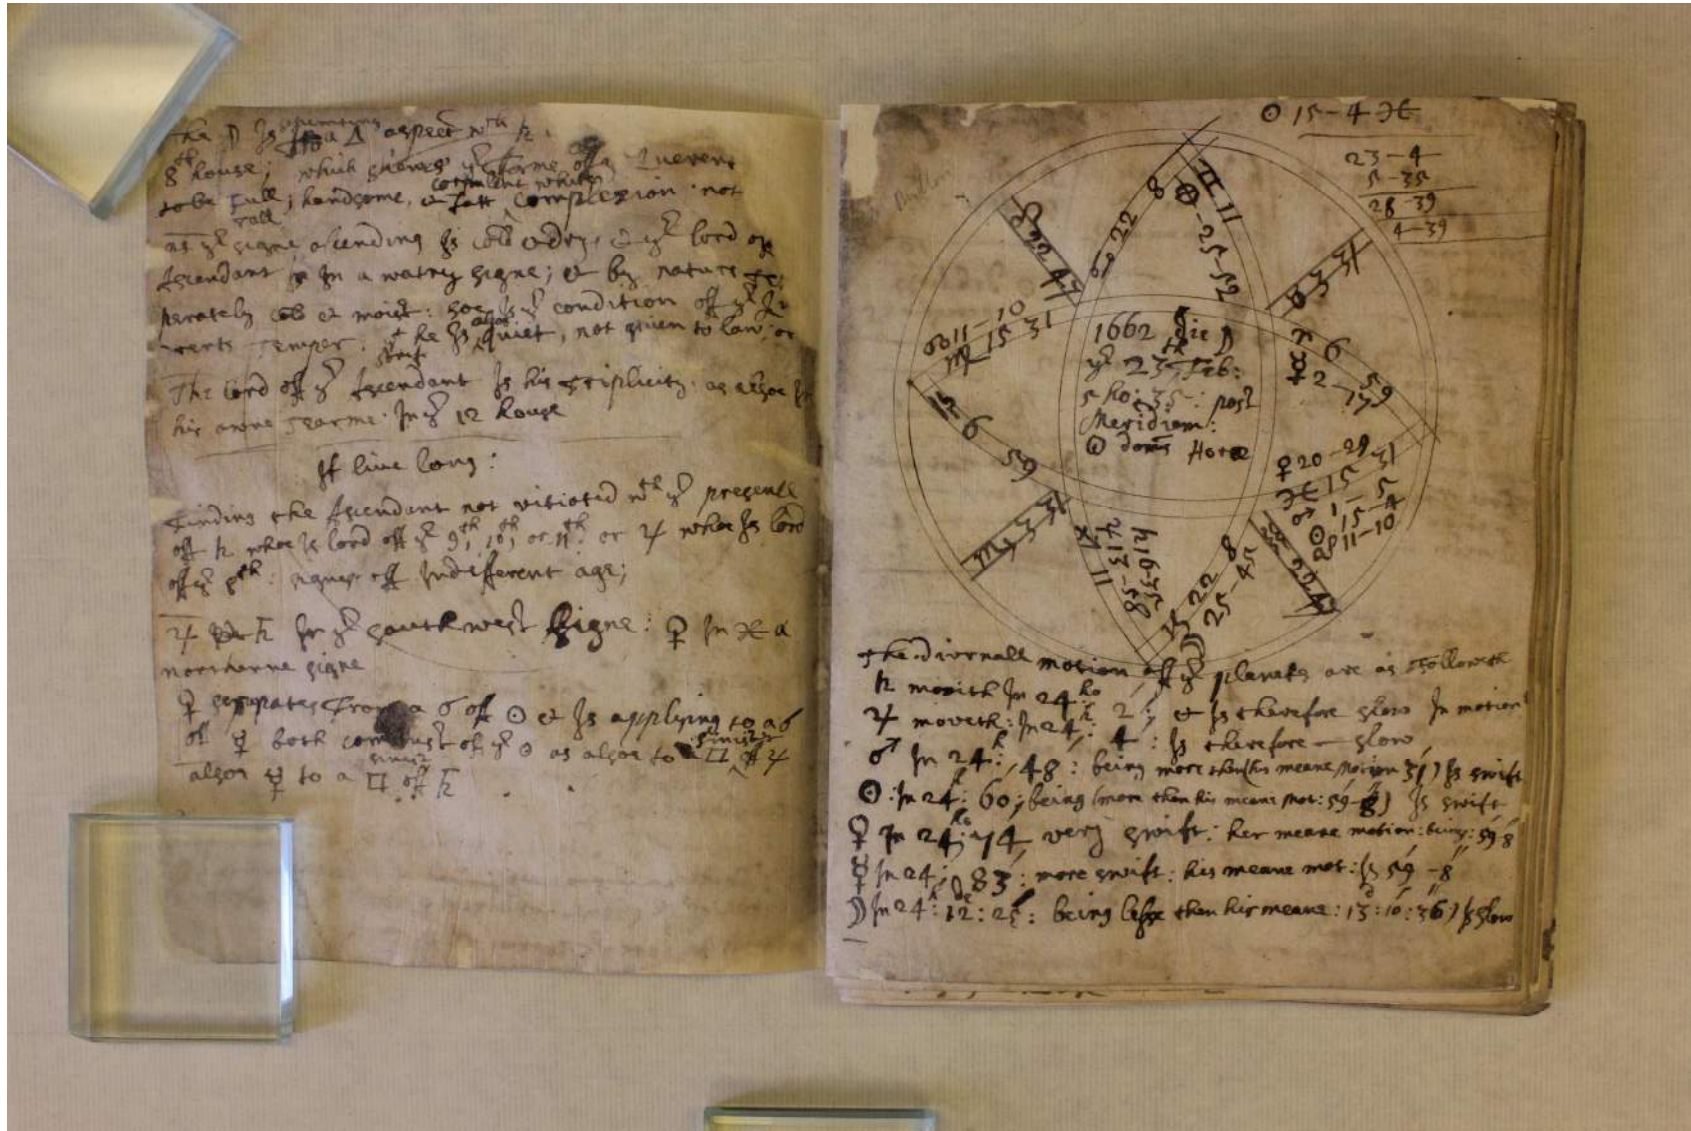 the ☽ Is separating from a △ aspect wth ♄.
8th house; which shewes ye forme of a Querent
to be full; handsome, & fatt corpulent whitish complexion. not
tall
as ye signe ascending Is cold & dry, & ye lord of
Ascendant Is In a watry signe; & by nature
perately cold & moist: soe Is ye condition off ye
rents temper: he Is also quiet, not given to law or
strife
The lord off ye Ascendant Is his triplicity. as alsoe In
his owne tearme. In ye 12 house
If live long:
finding the Ascendant not vitiated wth ye presence
off ♄ who Is lord off ye 9th, 10th, or 11th: or ♃ who Is lord
off ye 8th: signes off Indifferent age;
♃ ♄ In ye southwest signe: ♀ In ♓ a
northerne signe
♀ separates from a ☌ off ☉ & Is applying to a ☌
off ☿ both combust of ye ☉ as alsoe to sinister □ off ♃
alsoe ☿ to a sinister □ off ♄
☉ 15-4 ♓
23-4
5-35
28-39
4-39
♊ 11
⊕-25-52
♋ 22 8
♌ 22 47
☊ 11-10
♍ 15 31
♎ 6 59
♏ 3 31
♐ 11
♃ 13-58
♄ 19-35
♑ 22 8
☽ 25-45
♒ 22 47
♀ 20-29
♓ 15 31
♂ 1-5
☉ 15-4
☋ 11-10
♈ 6 59
☿ 2-17
♉ 3 31
1662 die ☽
ye 23th Feb:
5 ho: 35: post
Meridiem:
☉ doms Horæ
the diurnall motion off ye planets are as followeth
♄ moveth In 24 ho 2; & Is therefore slow In motion
♃ moveth: In 24 h: 4: Is therefore - slow
♂ In 24 h:, 48: being more then (his meane motion 31) Is swift
☉: In 24 h: 60; being (more then his meane mot: 59-8) Is swift
♀ In 24 ho; 74 very swift: her meane motion: being: 59 8
☿ In 24; 83: more swift: his meane mot: Is 59-8
☽ In 24 h: 12 de: 25: being lesse then his meane: 13: 10: 36) Is slow